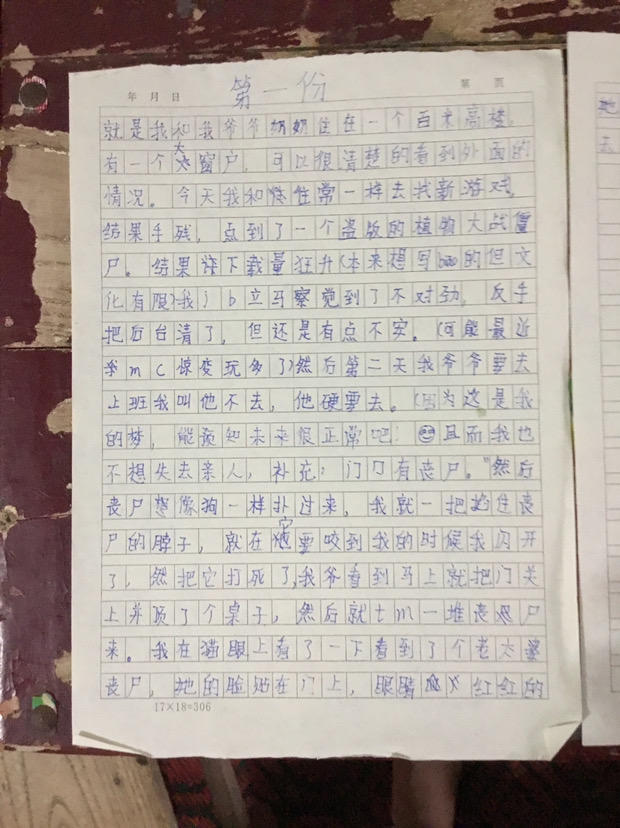 年 月 日 第一份 第 页
就是我和我爷爷奶奶住在一个百米高楼,
有一个大窗户,可以很清楚的看到外面的
情况。今天我和往常一样去找新游戏。
结果手残,点到了一个盗版的植物大战僵
尸。结果下载量狂升(本来想写的但文
化有限)我jb立马察觉到了不对劲,反手
把后台清了,但还是有点不安。(可能最近
mc惊变玩多了)然后第二天我爷爷要去
上班我叫他不去,他硬要去。(因为这是我
的梦,能预知未来很正常吧!且而我也
不想失去亲人,补充:门口有丧尸。"然后
丧尸像狗一样扑过来,我就一把掐住丧
尸的脖子,就在它要咬到我的时候我闪开
了,然把它打死了,我爷看到马上就把门关
上并顶了个桌子,然后就tm一堆丧尸
来。我在猫眼上看了一下看到了个老太婆
丧尸,她的脸贴在门上,眼睛红红的
17×18=306
她
去